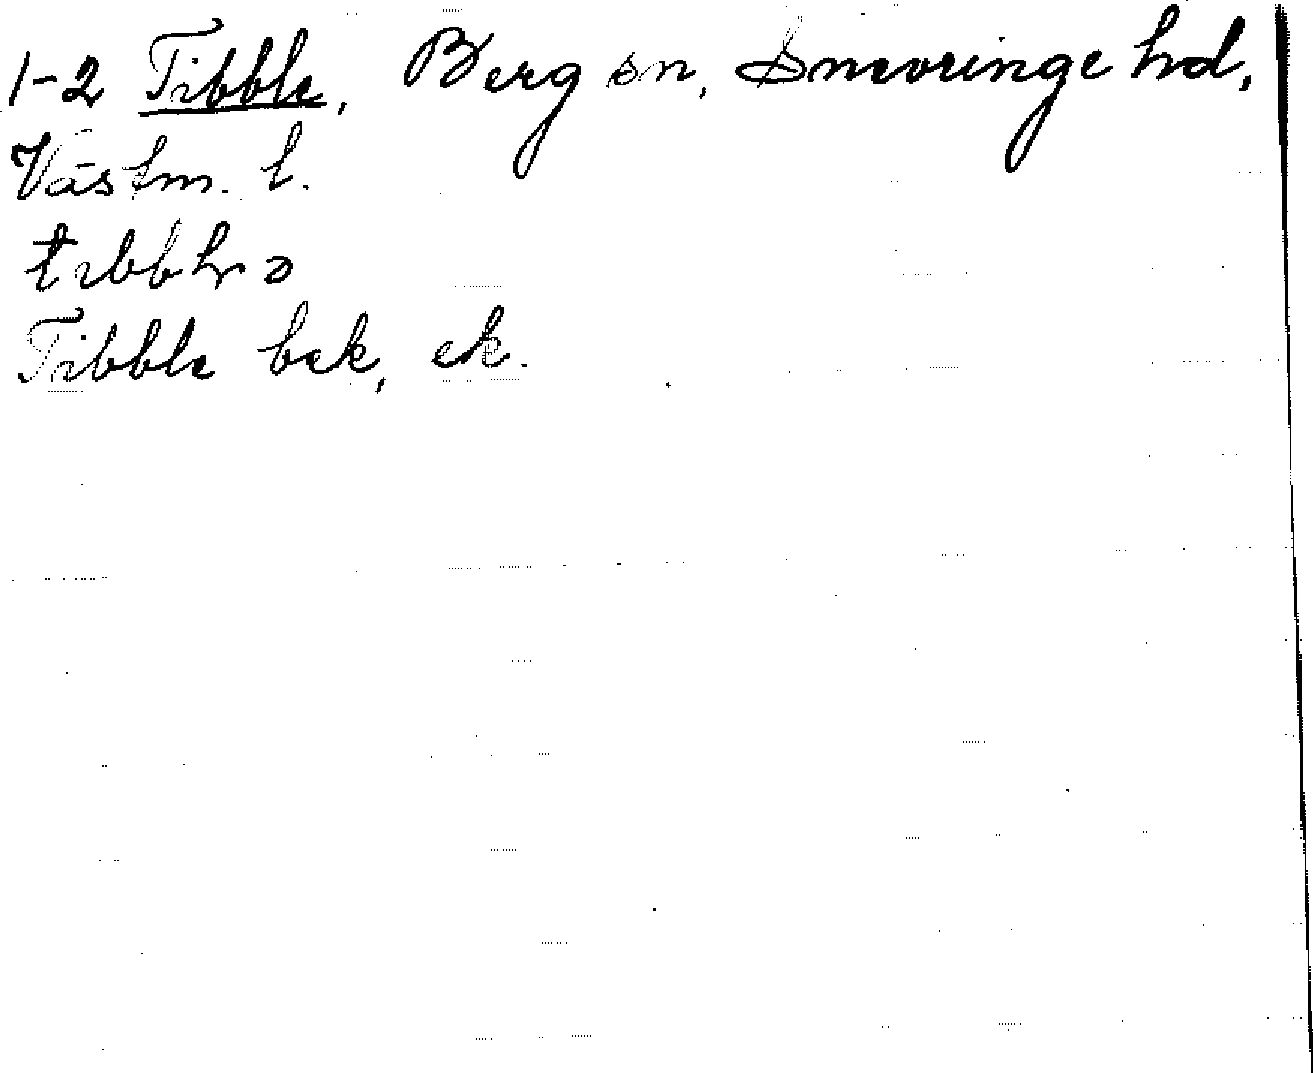 1-2 Tibble, Berg sn, Snevringe hd,
Västm. l.
Tibble bek, ek.